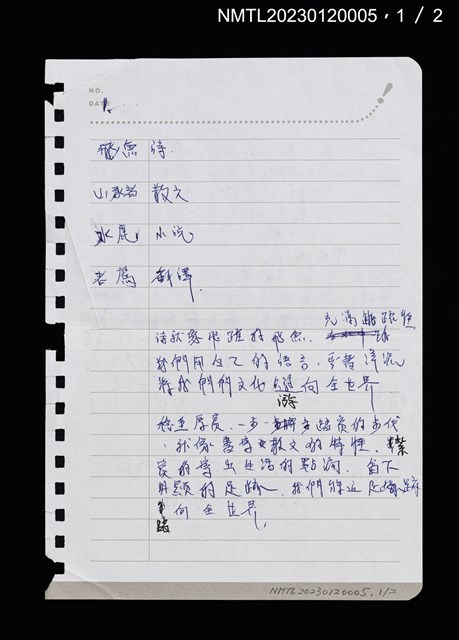 NMTL20230120005，1 / 2
NO.
DATE 1.
飛魚 詩.
山豬 散文
水鹿 小說
老鷹 翻譯.
充滿跳躍性
詩就像飛躍的飛魚.
我們用自己的語言.乎著洋流
將我們的文化 游 向全世界
穩重厚實.一步一 踏實的步伐
.就像書寫散文的特性.
實的寫出生活的點滴.留下
明顯的足跡.我們
向全世界.
NMTL20230120005. 1/2